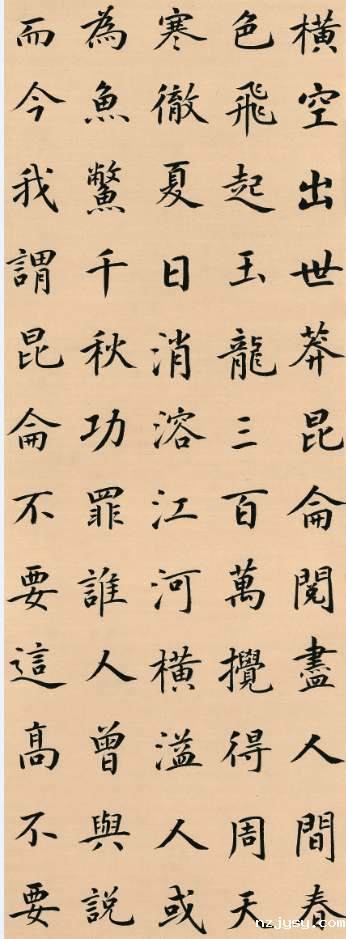 橫空出世莽昆侖閱盡人間春
色飛起玉龍三百萬攪得周天
寒徹夏日消溶江河橫溢人或
為魚鱉千秋功罪誰人曾與說
而今我謂昆侖不要這高不要
nzjysy.com